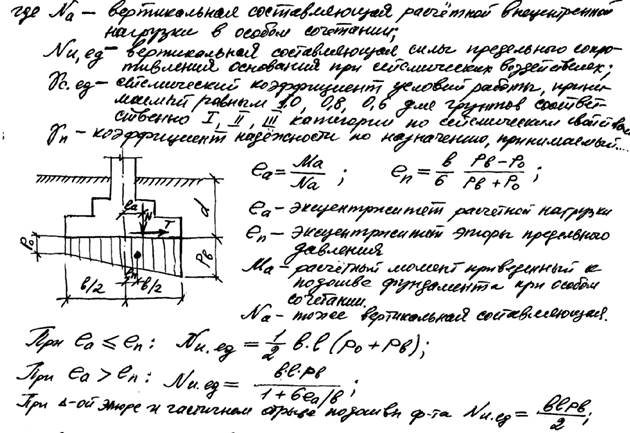 где Nа – вертикальная составляющая расчётной внецентренной
нагрузки в особом сочетании;
Nu,ед – вертикальная составляющая силы предельного сопро-
тивления основания при сейсмических воздействиях;
γc.ед – сейсмический коэффициент условий работы, прини-
маемый равным 1.0, 0,8, 0,6 для грунтов соответ-
ственно I, II, III категории по сейсмическим свойствам
γn – коэффициент надёжности по назначению, принимаемый....
eа = Mа/Nа ; eп = в/6 · (Pв – P0)/(Pв + P0) ;
eа – эксцентриситет расчётной нагрузки
eп – эксцентриситет эпюры предельного
давления
Mа – расчётный момент приведенный к
подошве фундамента при особом
сочетании.
Nа – тоже вертикальная составляющая.
eа N T d
P0 Pв
в/2 eп в/2
При eа ≤ eп : Nu.ед = 1/2 в.l (P0 + Pв);
При eа > eп : Nu.ед = в.l.Pв/(1 + 6eа/в) ;
При Δ-ой эпюре и частичном отрыве подошвы ф-та Nu.ед = вlPв/2 ;